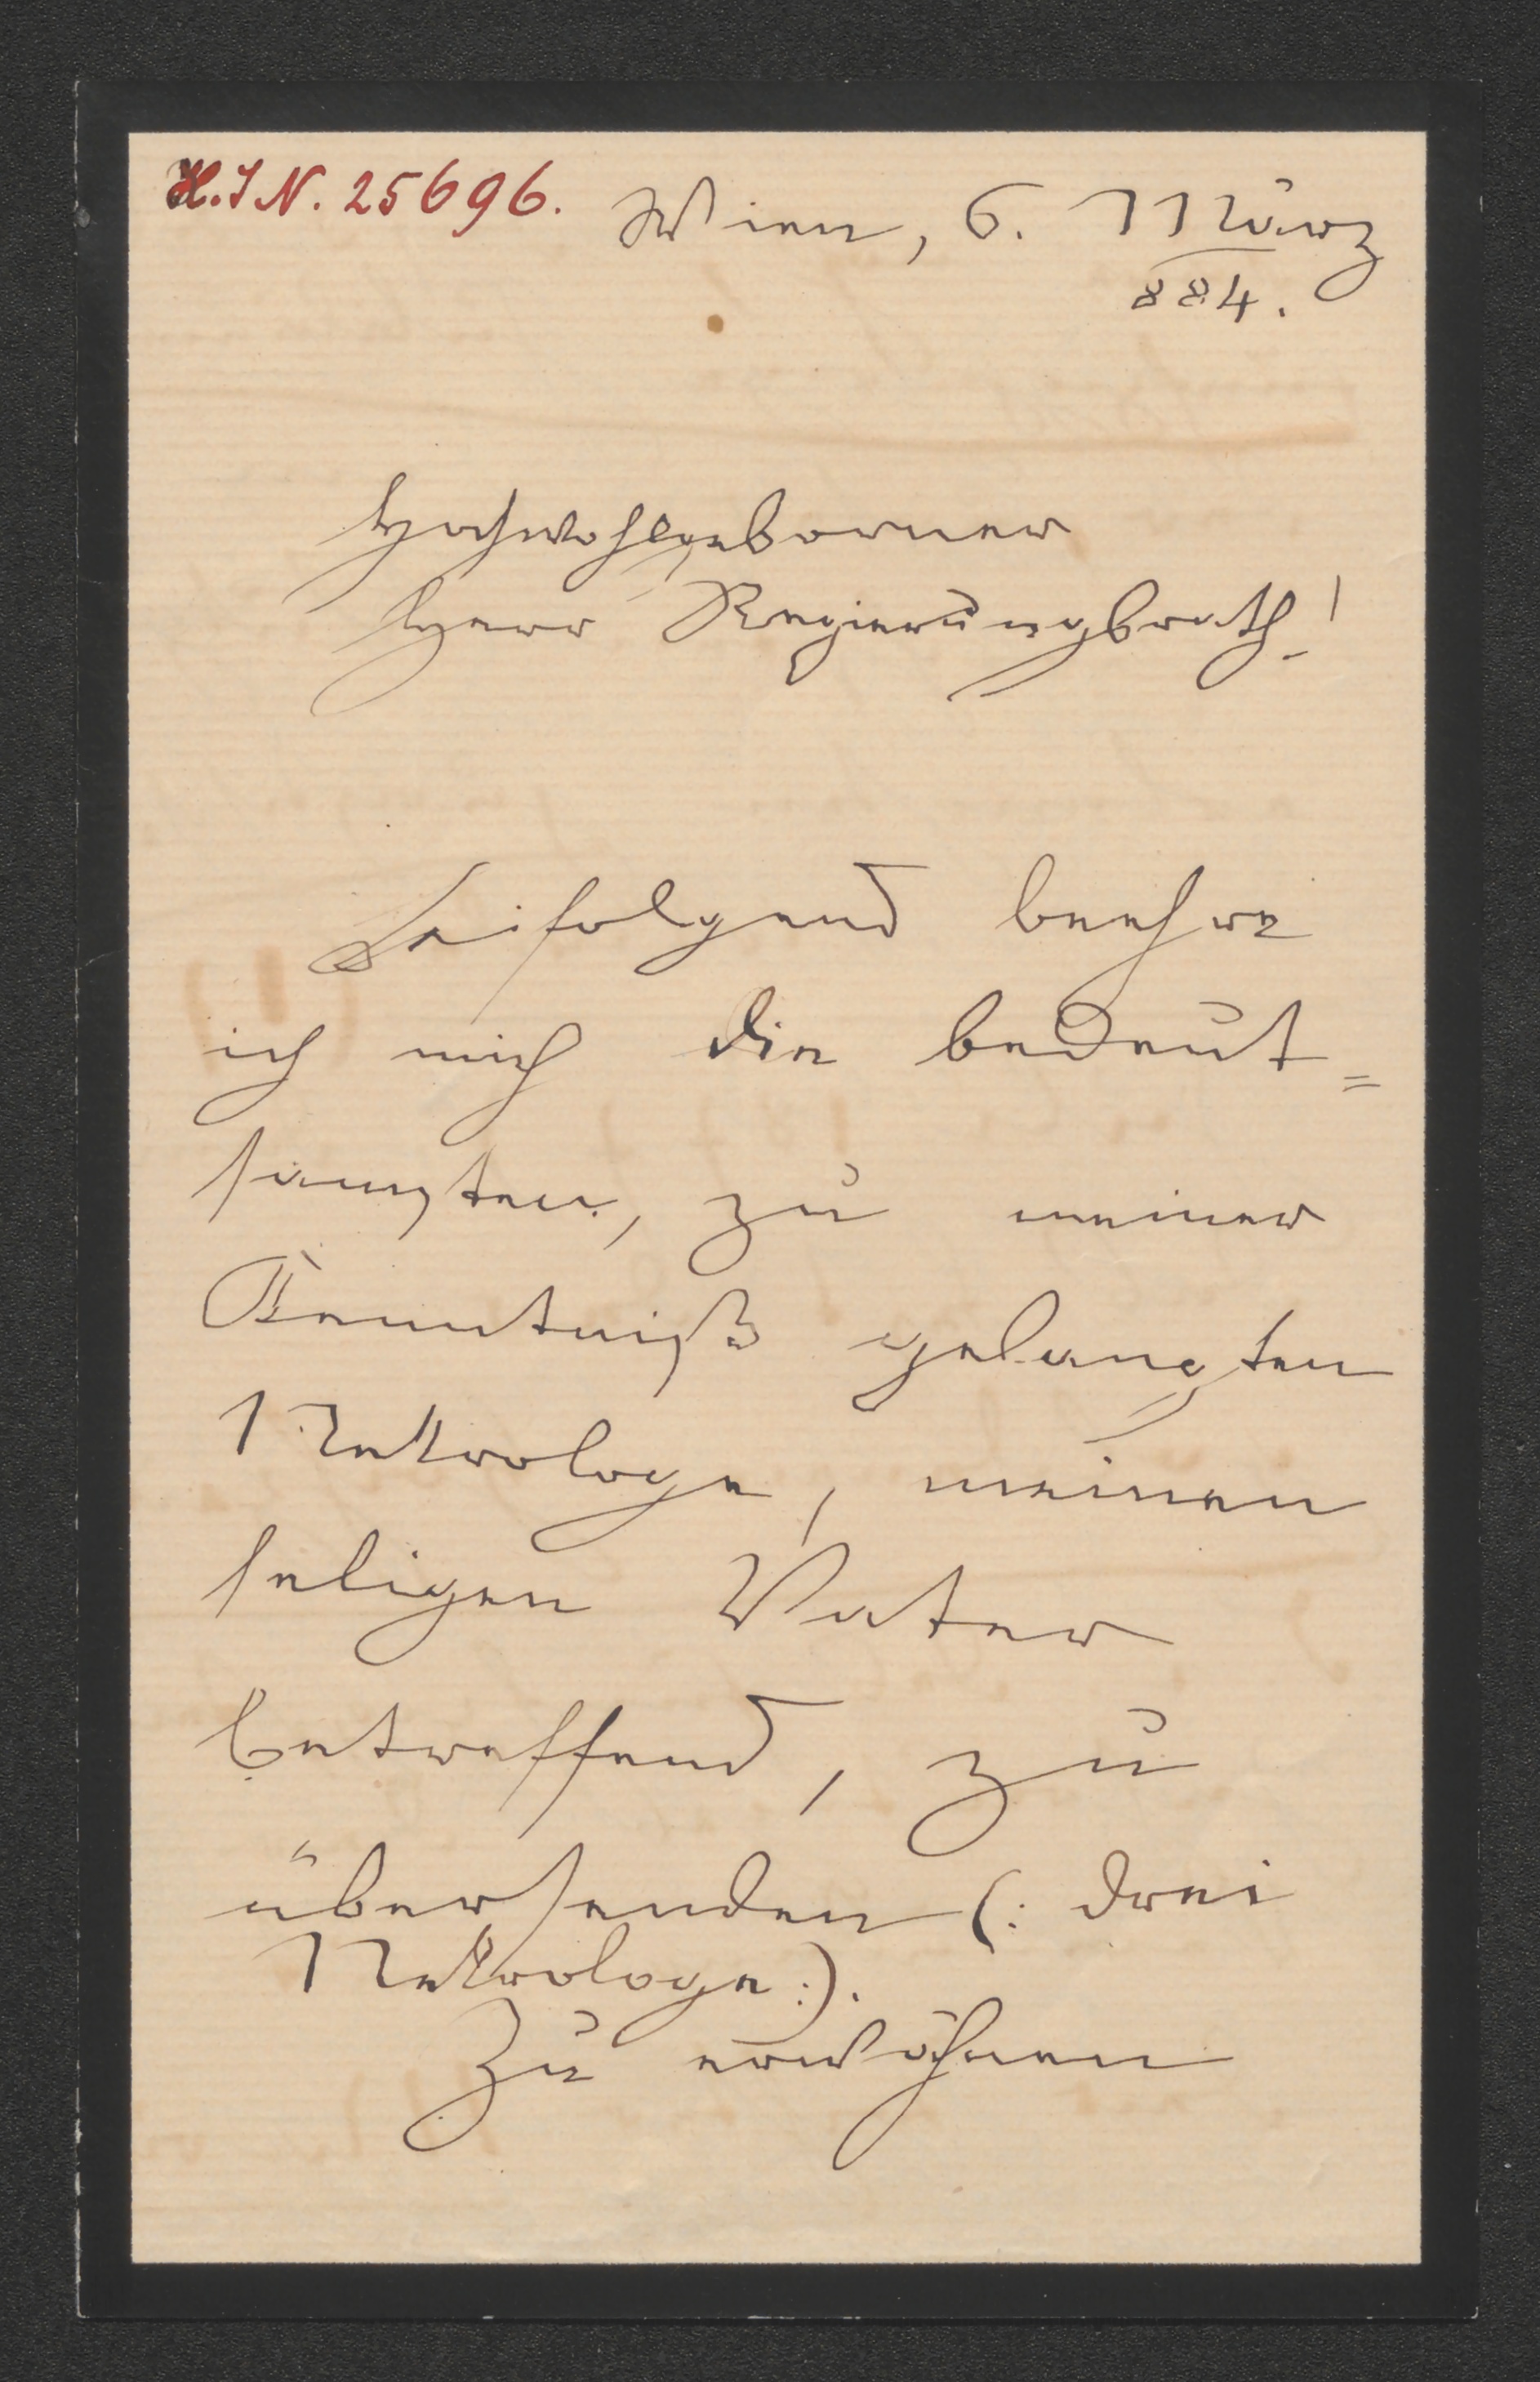 H.I.N. 25696.
Wien, 6. März
884.
Hochwohlgeborner
Herr Regierungsrath!
Beifolgend beehre
ich mich die bedeut=
samsten, zu meiner
Kenntniß gelangten
Nekrologe, meinen
seligen Vater
betreffend, zu
übersenden (: drei
Nekrologe :).
Zu erwähnen